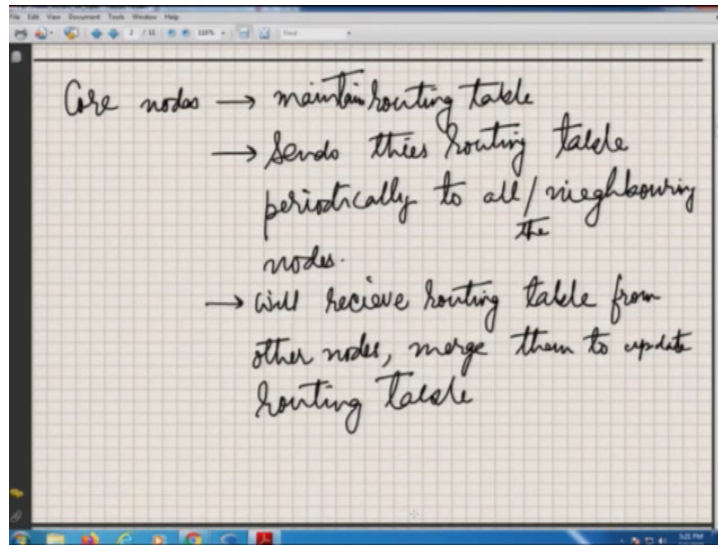 File Edit View Document Tools Window Help
2 / 11 110% Find
Core nodes → maintain routing table
→ sends thies routing table
periodically to all / nieghbouring
the
nodes.
→ will recieve routing table from
other nodes, merge them to update
routing table
5:21 PM